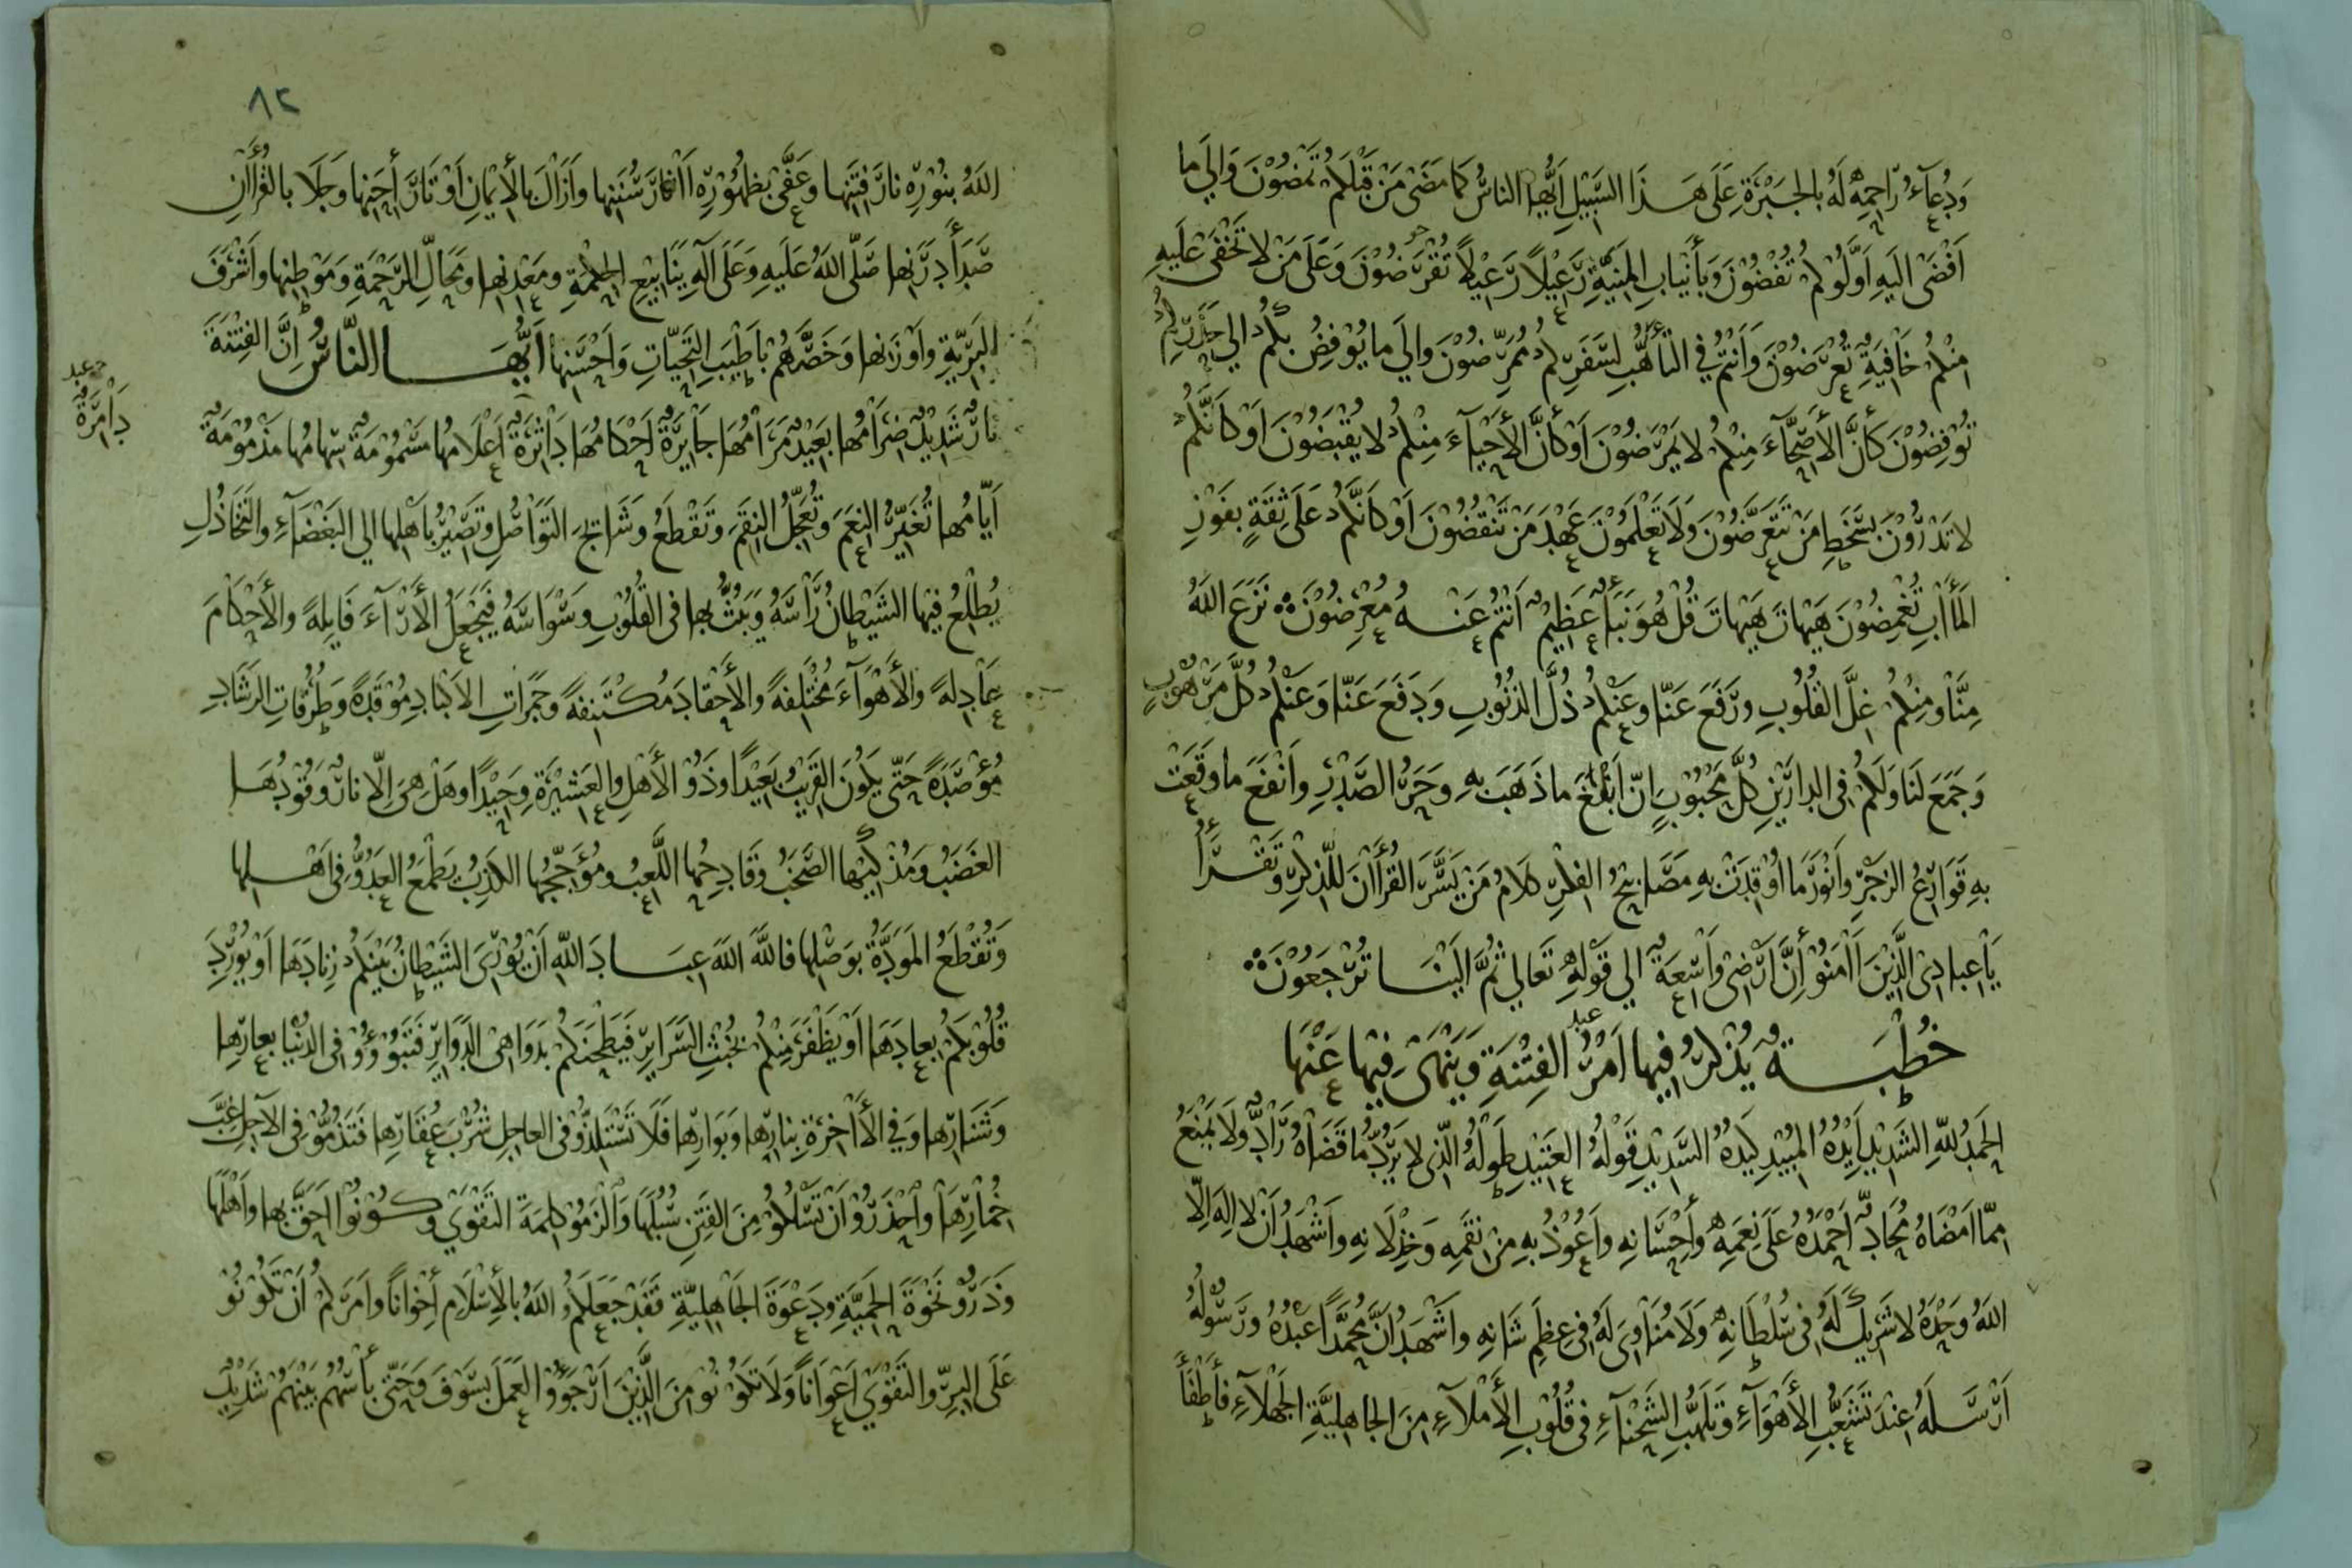 وَدُعَآءُ رَاحِمِهِ لَهُ بِالْحَبْرَةِ عَلَى هَذَا السَّبِيْلِ اَيُّهَا النَّاسُ كَمَا مَضَى مَنْ قَبْلَكُمْ تَمْضُوْنَ وَاِلَى مَا
اَفْضَى اِلَيْهِ اَوَّلُوْكُمْ تُفْضُوْنَ وَبِأَنْيَابِ الْمَنِيَّةِ رَعِيْلًا رَعِيْلًا تُقْرَضُوْنَ وَعَلَى مَنْ لَا تَخْفَى عَلَيْهِ
مِنْكُمْ خَافِيَةٌ تُعْرَضُوْنَ وَأَنْتُمْ فِي التَّأَهُّبِ لِسَفَرِكُمْ مُمَرِّضُوْنَ وَاِلَى مَا يُوْفِضُ بِكُمْ اِلَى حَذَرِكُمْ
تُوْفِضُوْنَ كَأَنَّ الْأَصِحَّآءَ مِنْكُمْ لَا يَمْرَضُوْنَ اَوْ كَأَنَّ الْأَحْيَآءَ مِنْكُمْ لَا يُقْبَضُوْنَ اَوْ كَأَنَّكُمْ
لَا تَدْرُوْنَ بِسَخَطِ مَنْ تَتَعَرَّضُوْنَ وَلَا تَعْلَمُوْنَ عَهْدَ مَنْ تَنْقُضُوْنَ اَوْ كَأَنَّكُمْ عَلَى ثِقَةٍ بِفَوْزِ
الْمَأٰبِ تُغْمِضُوْنَ هَيْهَاتَ هَيْهَاتَ قُلْ هُوَ نَبَأٌ عَظِيْمٌ اَنْتُمْ عَنْهُ مُعْرِضُوْنَ ۞ نَزَعَ اللهُ
مِنَّا وَمِنْكُمْ غِلَّ الْقُلُوْبِ وَرَفَعَ عَنَّا وَعَنْكُمْ ذُلَّ الذُّنُوْبِ وَدَفَعَ عَنَّا وَعَنْكُمْ كُلَّ مَرْهُوْبٍ
وَجَمَعَ لَنَا وَلَكُمْ فِي الدَّارَيْنِ كُلَّ مَحْبُوْبٍ اِنَّ اَبْلَغَ مَا ذَهَبَ بِهِ وَحَرُ الصَّدْرِ وَانْفَعَ مَا وَقَعَتْ
بِهِ قَوَارِعُ الزَّجْرِ وَاَنْوَرَ مَا اُوْقِدَتْ بِهِ مَصَابِيْحُ الْفِكْرِ كَلَامُ مَنْ يَسَّرَ الْقُرْاٰنَ لِلذِّكْرِ وَتَقْرَأُ
يَاعِبَادِيَ الَّذِيْنَ اٰمَنُوْا اِنَّ اَرْضِيْ وَاسِعَةٌ اِلَى قَوْلِهِ تَعَالَى ثُمَّ اِلَيْنَا تُرْجَعُوْنَ ۞
خُطْبَةٌ يُذْكَرُ فِيْهَا اَمْرُ الْفِتْنَةِ وَيَنْهَى فِيْهَا عَنْهَا
اَلْحَمْدُ لِلّٰهِ الشَّدِيْدِ اَيْدُهُ الْمُبِيْدِ كَيْدُهُ السَّدِيْدِ قَوْلُهُ الْعَتِيْدِ طَوْلُهُ الَّذِيْ لَا يَرُدُّ مَا قَضَاهُ رَادٌّ وَلَا يَمْنَعُ
مِمَّا اَمْضَاهُ مُحَادٌّ اَحْمَدُهُ عَلَى نِعَمِهِ وَاِحْسَانِهِ وَاَعُوْذُ بِهِ مِنْ نِقَمِهِ وَخِذْلَانِهِ وَاَشْهَدُ اَنْ لَا اِلٰهَ اِلَّا
اللهُ وَحْدَهُ لَا شَرِيْكَ لَهُ فِيْ سُلْطَانِهِ وَلَا مُنَاوِيَ لَهُ فِيْ عِظَمِ شَانِهِ وَاَشْهَدُ اَنَّ مُحَمَّدًا عَبْدُهُ وَرَسُوْلُهُ
اَرْسَلَهُ عِنْدَ تَشَعُّبِ الْأَهْوَآءِ وَتَلَهُّبِ الشَّحْنَآءِ فِيْ قُلُوْبِ الْأَمْلَآءِ مِنَ الْجَاهِلِيَّةِ الْجَهْلَآءِ فَأَطْفَأَ
٨٢
اللهُ بِنُوْرِهِ نَارَ فِتَنِهَا وَعَفَّى بِظُهُوْرِهِ اٰثَارَ سُنَنِهَا وَاَزَالَ بِالْإِيْمَانِ اَوْتَارَ اِحَنِهَا وَجَلَا بِالْقُرْاٰنِ
صَدَأَ دَرَنِهَا صَلَّى اللهُ عَلَيْهِ وَعَلَى اٰلِهِ يَنَابِيْعِ الْحِكْمَةِ وَمَعْدِنِهَا وَمَحَالِّ الرَّحْمَةِ وَمَوْطِنِهَا وَاَشْرَفِ
الْبَرِيَّةِ وَاَوْزَنِهَا وَخَصَّهُمْ بِاَطْيَبِ التَّحِيَّاتِ وَاَحْسَنِهَا اَيُّهَا النَّاسُ اِنَّ الْفِتْنَةَ
نَارٌ شَدِيْدٌ ضِرَامُهَا بَعِيْدٌ مَرَامُهَا جَايِرَةٌ اَحْكَامُهَا دَاثِرَةٌ اَعْلَامُهَا مَسْمُوْمَةٌ سِهَامُهَا مَذْمُوْمَةٌ
اَيَّامُهَا تُغَيِّرُ النِّعَمَ وَتُعَجِّلُ النِّقَمَ وَتَقْطَعُ وَشَائِجَ التَّوَاصُلِ وَتَصِيْرُ بِاَهْلِهَا اِلَى الْبَغْضَآءِ وَالتَّخَاذُلِ
يُطْلِعُ فِيْهَا الشَّيْطَانُ رَأْسَهُ وَيَبُثُّ بِهَا فِي الْقُلُوْبِ وَسْوَاسَهُ فَيَجْعَلُ الْأَرَآءَ فَايِلَةً وَالْأَحْكَامَ
عَادِلَةً وَالْأَهْوَآءَ مُخْتَلِفَةً وَالْأَحْقَادَ مُكْتَنِفَةً وَجَمَرَاتِ الْأَكْبَادِ مُوْقَدَةً وَطُرُقَاتِ الرَّشَادِ
مُؤْصَدَةً حَتَّى يَكُوْنَ الْقَرِيْبُ بَعِيْدًا وَذُو الْأَهْلِ وَالْعَشِيْرَةِ وَحِيْدًا وَهَلْ هِيَ اِلَّا نَارٌ وَقُوْدُهَا
الْغَضَبُ وَمُذْكِيْهَا الصَّخَبُ وَقَادِحُهَا اللَّعِبُ وَمُؤَجِّجُهَا الْكَذِبُ يَطْمَعُ الْعَدُوُّ فِيْ اَهْلِهَا
وَتُقْطَعُ الْمَوَدَّةُ بِوَصْلِهَا فَاللّٰهَ اللّٰهَ عِبَادَ اللّٰهِ اَنْ يُوْرِيَ الشَّيْطَانُ بَيْنَكُمْ زِنَادَهَا اَوْ يُوْرِدَ
قُلُوْبَكُمْ بِعَادَهَا اَوْ يَظْفَرَ مِنْكُمْ بِخُبْثِ السَّرَايِرِ فَيَطْحَنَكُمْ بِدَوَاهِي الدَّوَايِرِ فَتَبُوْؤُوْا فِي الدُّنْيَا بِعَارِهَا
وَشَنَارِهَا وَفِي الْاٰخِرَةِ بِنَارِهَا وَبَوَارِهَا فَلَا تَسْتَلِذُّوْا فِي الْعَاجِلِ شُرْبَ عُقَارِهَا فَتَذُمُّوْا فِي الْاٰجِلِ غِبَّ
خُمَارِهَا وَاحْذَرُوْا اَنْ تَسْلُكُوْا مِنَ الْفِتَنِ سُبُلَهَا وَالْزَمُوْا كَلِمَةَ التَّقْوَى وَكُوْنُوْا اَحَقَّ بِهَا وَاَهْلَهَا
وَذَرُوْا نَخْوَةَ الْحَمِيَّةِ وَدَعْوَةَ الْجَاهِلِيَّةِ فَقَدْ جَعَلَكُمُ اللهُ بِالْإِسْلَامِ اِخْوَانًا وَاَمَرَكُمْ اَنْ تَكُوْنُوْا
عَلَى الْبِرِّ وَالتَّقْوَى اَعْوَانًا وَلَا تَكُوْنُوْا مِنَ الَّذِيْنَ اَرْجَوُا الْعَمَلَ بِسَوْفَ وَحَتَّى بَأْسُهُمْ بَيْنَهُمْ شَدِيْدٌ